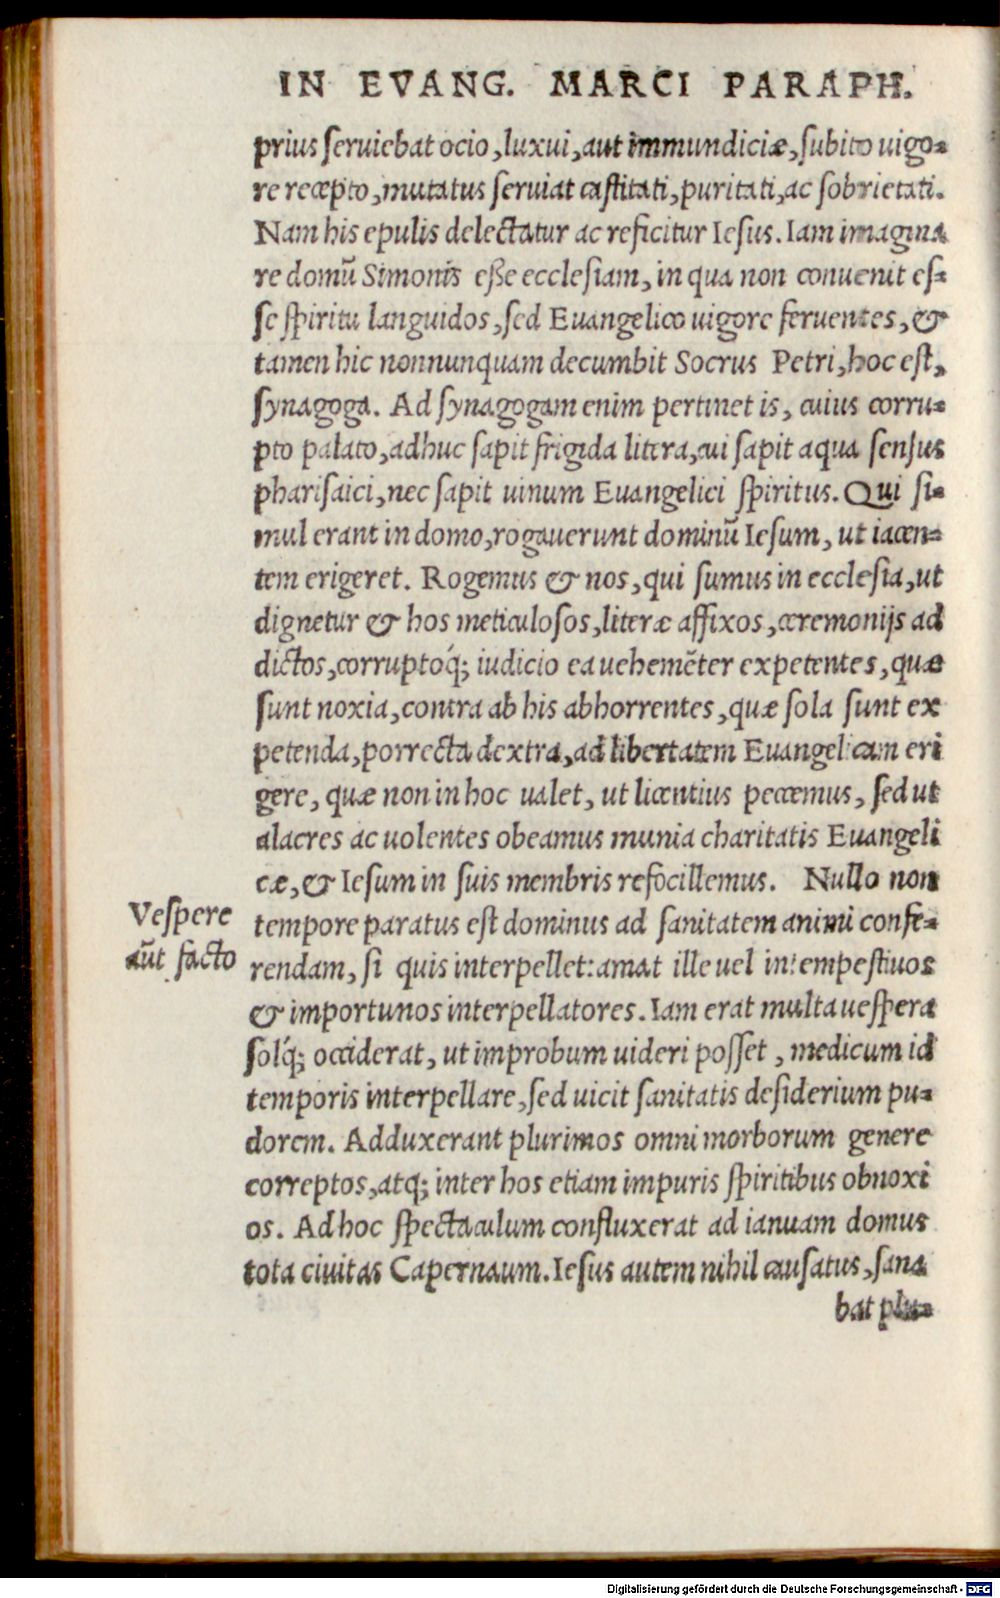 IN EVANG. MARCI PARAPH.
prius seruiebat ocio, luxui, aut immundiciæ, subito uigo-
re recepto, mutatus seruiat castitati, puritati, ac sobrietati.
Nam his epulis delectatur ac reficitur Iesus. Iam imagina
re domũ Simonis eße ecclesiam, in qua non conuenit es-
se spiritu languidos, sed Euangelico uigore feruentes, &
tamen hic nonnunquam decumbit Socrus Petri, hoc est,
synagoga. Ad synagogam enim pertinet is, cuius corru-
pto palato, adhuc sapit frigida litera, cui sapit aqua sensus
pharisaici, nec sapit uinum Euangelici spiritus. Qui si-
mul erant in domo, rogauerunt dominũ Iesum, ut iacen-
tem erigeret. Rogemus & nos, qui sumus in ecclesia, ut
dignetur & hos meticulosos, literæ affixos, ceremonijs ad
dictos, corruptoq́; iudicio ea uehemẽter expetentes, quæ
sunt noxia, contra ab his abhorrentes, quæ sola sunt ex
petenda, porrecta dextra, ad libertatem Euangelicam eri
gere, quæ non in hoc ualet, ut licentius peccemus, sed ut
alacres ac uolentes obeamus munia charitatis Euangeli
cæ, & Iesum in suis membris refocillemus. Nullo non
Vespere
aũt facto
tempore paratus est dominus ad sanitatem animi confe-
rendam, si quis interpellet: amat ille uel intempestiuos
& importunos interpellatores. Iam erat multa uespera
solq́; occiderat, ut improbum uideri posset, medicum id
temporis interpellare, sed uicit sanitatis desiderium pu-
dorem. Adduxerant plurimos omni morborum genere
correptos, atq; inter hos etiam impuris spiritibus obnoxi
os. Ad hoc spectaculum confluxerat ad ianuam domus
tota ciuitas Capernaum. Iesus autem nihil causatus, sana
bat plu-
Digitalisierung gefördert durch die Deutsche Forschungsgemeinschaft - DFG